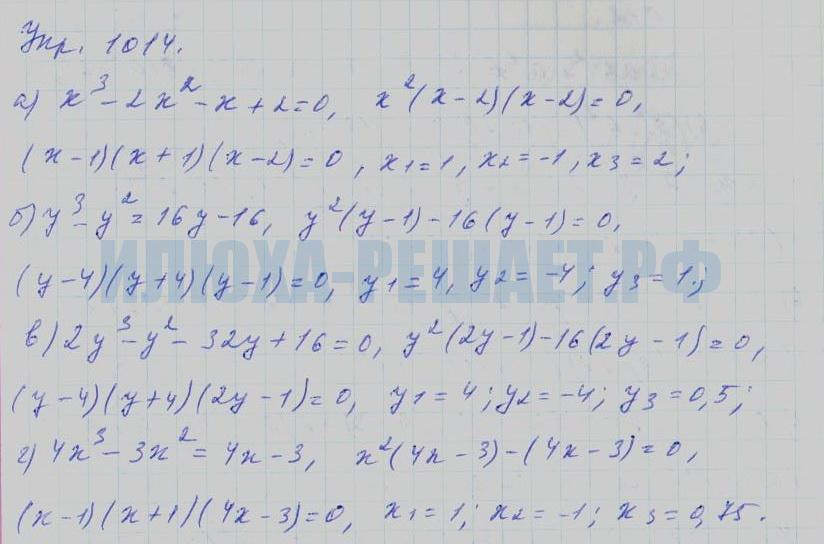 Упр. 1014.
а) x³ - 2x² - x + 2 = 0, x²(x-2)(x-2) = 0,
(x-1)(x+1)(x-2) = 0, x₁ = 1, x₂ = -1, x₃ = 2;
б) y³ - y² = 16y - 16, y²(y-1) - 16(y-1) = 0,
ИЛЮХА-РЕШАЕТ.РФ
(y-4)(y+4)(y-1) = 0, y₁ = 4, y₂ = -4; y₃ = 1.;
в) 2y³ - y² - 32y + 16 = 0, y²(2y-1) - 16(2y-1) = 0,
(y-4)(y+4)(2y-1) = 0, y₁ = 4; y₂ = -4; y₃ = 0,5;
г) 4x³ - 3x² = 4x - 3, x²(4x-3) - (4x-3) = 0,
(x-1)(x+1)(4x-3) = 0, x₁ = 1; x₂ = -1; x₃ = 0,75.